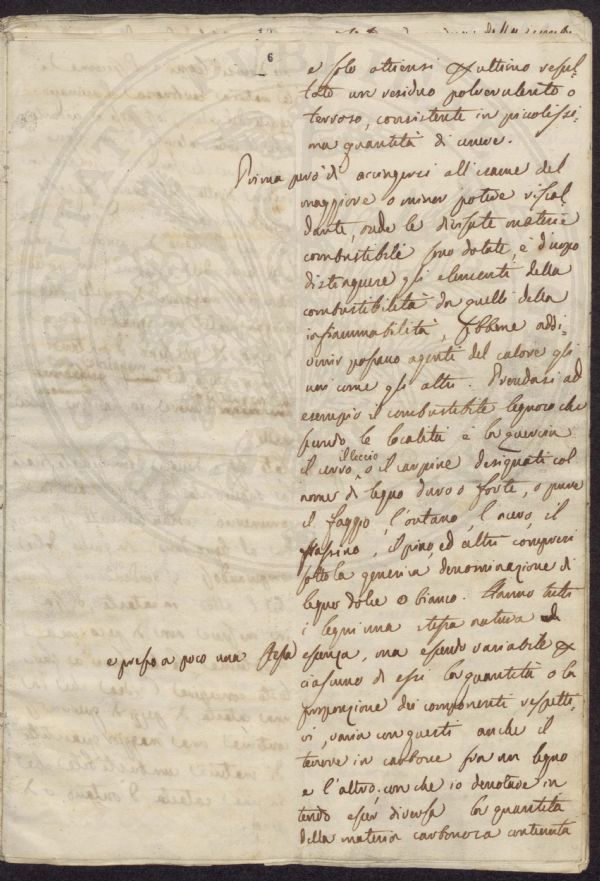 6
e solo ottiensi per ultimo resul-
tato un residuo polverulento o
terroso, consistente in picolissi-
ma quantità di cenere.
Prima però di accingersi all'esame del
maggiore o minor potere riscal
dante, onde le diverse materie
combustibili sono dotate, è d'uopo
distinguere gli elementi della
combustibilità da quelli della
infiammabilità, sebbene addi-
venir possano agenti del calore gli
uni come gli altri. Prendasi ad
esempio il combustibile legnoso che
secondo le località è la quercia
il cerro, illeccio o il carpine designati col
nome di legno duro o forte, o pure
il faggio, l'ontano, l'acero, il
frassino, il pino, ed altri compresi
sotto la generica denominazione di
legno dolce o bianco. Hanno tutti
i legni una stessa natura
e presso a poco una stessa essenza, ma essendo variabile per
ciascuno di essi la quantità o la
proporzione dei componenti rispetti-
vi, varia con questi anche il
tenore in carbone fra un legno
e l'altro; con che io denotare in
tendo esser diversa la quantità
della materia carbonosa contenuta